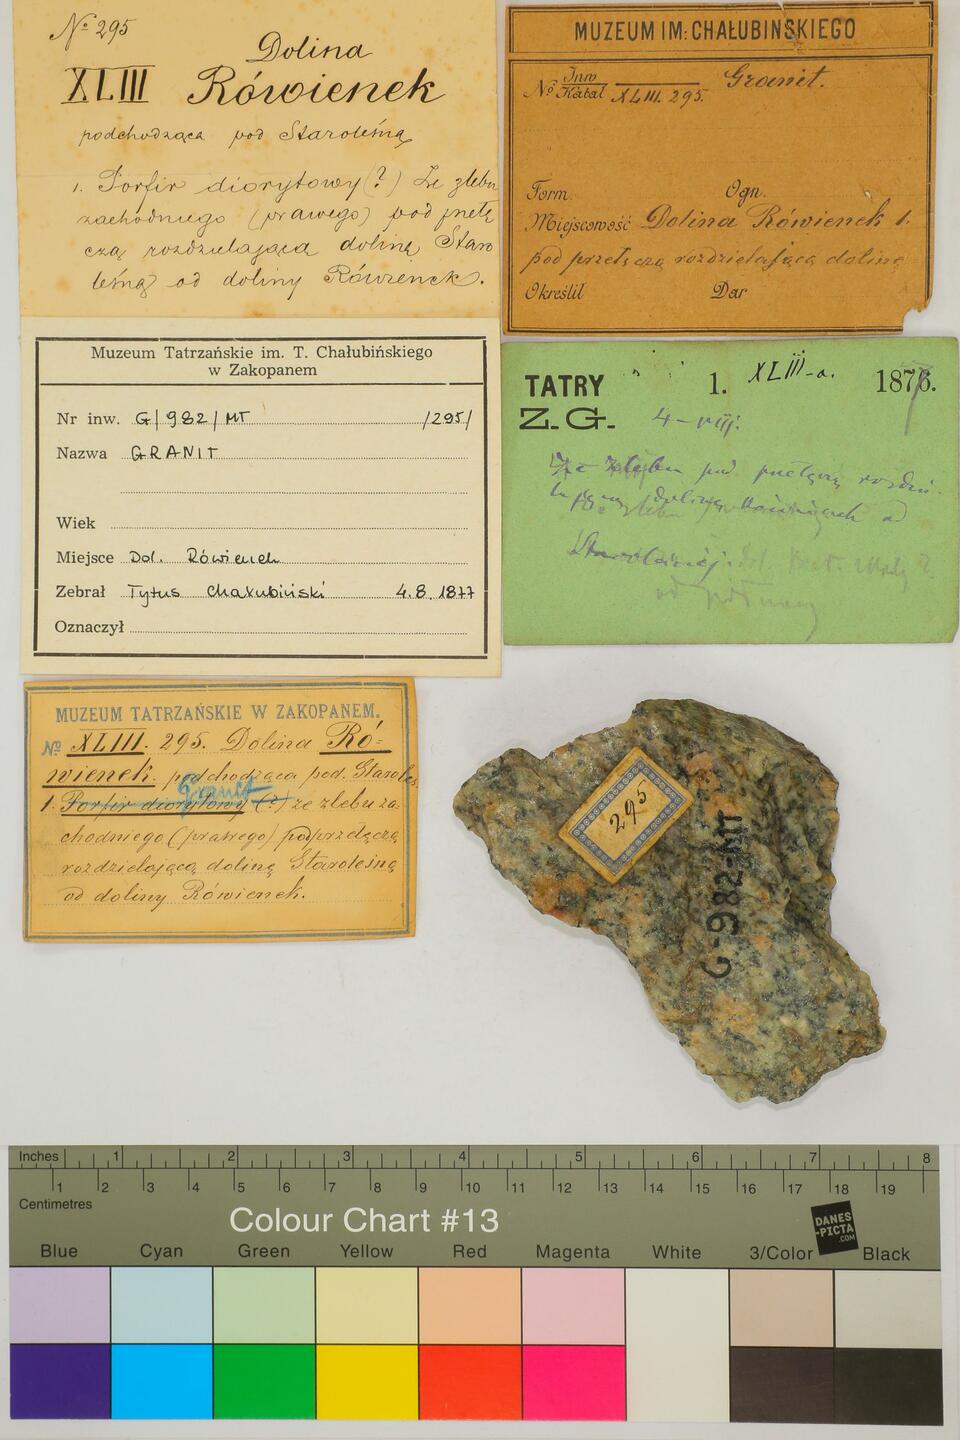 No 295
Dolina
XLIII Rówienek
podchodząca pod Staroleśną
1. Porfir diorytowy (?) Ze żlebu
zachodniego (prawego) pod przełę
czą rozdzielającą dolinę Staro
leśną od doliny Rówienek.
MUZEUM IM: CHAŁUBINSKIEGO
No Inw Katal XLIII. 295. Granit.
Form. Ogn.
Miejscowość Dolina Rówienek 1.
pod przełęczą rozdzielającą dolinę
Określił Dar
Muzeum Tatrzańskie im. T. Chałubińskiego
w Zakopanem
Nr inw. G/982/MT /295/
Nazwa GRANIT
Wiek
Miejsce Dol. Rówienek
Zebrał Tytus Chałubiński 4.8.1877
Oznaczył
TATRY 1. XLIII-a. 1877.
Z.G. 4-VIII.
żlebu pod przełęczą rozdzie
dolinę Rówienek od
Staroleśnej.
od północy
MUZEUM TATRZAŃSKIE W ZAKOPANEM.
No XLIII. 295. Dolina Ró-
wienek. podchodząca pod. Staroleś
Granit
1. Porfir diorytowy (?) ze żlebu za
chodniego (prawego) pod przełęczą
rozdzielającą dolinę Staroleśną
od doliny Rówienek.
295
G-982-MT
Inches 1 2 3 4 5 6 7 8
1 2 3 4 5 6 7 8 9 10 11 12 13 14 15 16 17 18 19
Centimetres
Colour Chart #13
DANES-PICTA.COM
Blue Cyan Green Yellow Red Magenta White 3/Color Black